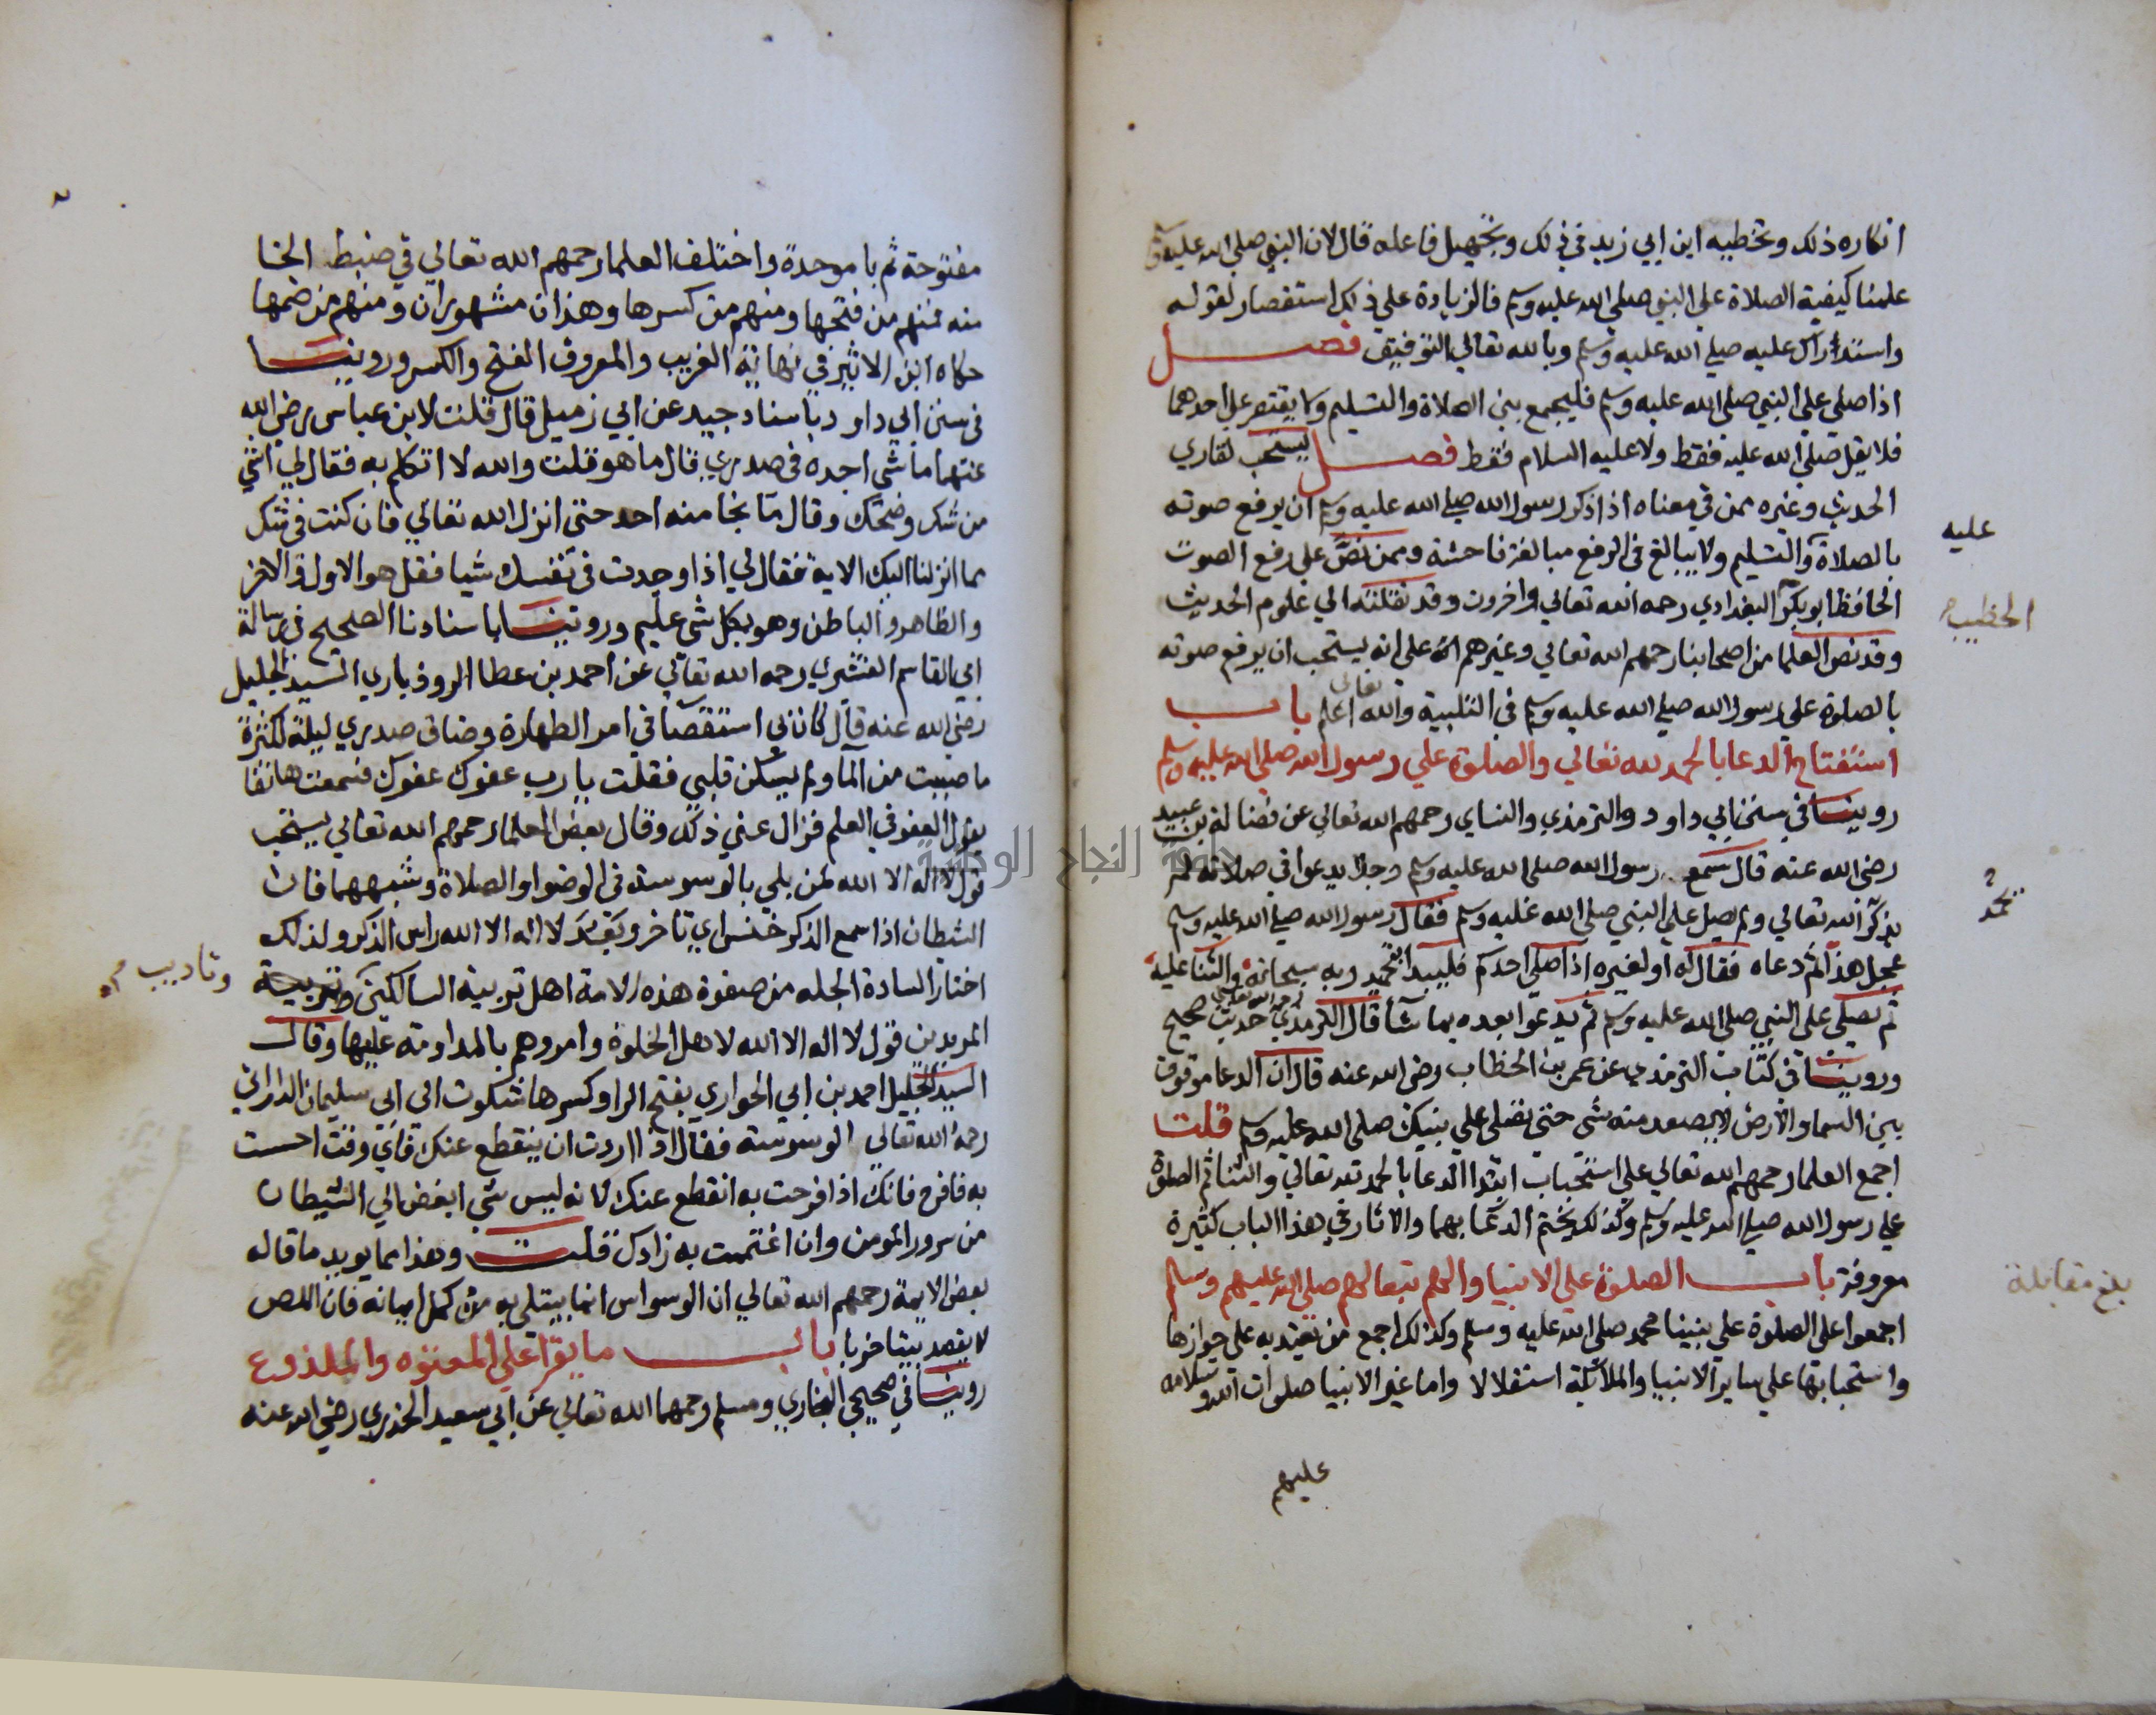 انكاره ذلك وتخطيه ابن ابي زيد في ذلك وتجهيل فاعله قال لان النبي صلى الله عليه وسلم
علمنا كيفية الصلاة على النبي صلى الله عليه وسلم فالزيادة على ذلك استقصار لقوله
واستدراك عليه صلى الله عليه وسلم وبالله تعالى التوفيق فصل
اذا صلى على النبي صلى الله عليه وسلم فليجمع بين الصلاة والتسليم ولا يقتصر على احدهما
فلا يقل صلى الله عليه فقط ولا عليه السلام فقط فصل يستحب لقاري
الحديث وغيره ممن في معناه اذا ذكر رسول الله صلى الله عليه وسلم ان يرفع صوته
بالصلاة والتسليم ولا يبالغ في الرفع مبالغة فاحشة وممن نص على رفع الصوت
الحافظ ابو بكر البغدادي رحمه الله تعالى واخرون وقد نقلته الى علوم الحديث
وقد نص العلما من اصحابنا رحمهم الله تعالى وغيرهم انه على انه يستحب ان يرفع صوته
بالصلوة على رسول الله صلى الله عليه وسلم في التلبية والله تعالى اعلم باب
استفتاح الدعا بالحمد لله تعالى والصلوة على رسول الله صلى الله عليه وسلم
روينا في سنن ابي داود والترمذي والنساي رحمهم الله تعالى عن فضالة بن عبيد
رضي الله عنه قال سمع رسول الله صلى الله عليه وسلم رجلا يدعوا في صلاته لم
يذكر الله تعالى ولم يصل على النبي صلى الله عليه وسلم فقال رسول الله صلى الله عليه وسلم
عجل هذا ثم دعاه فقال له او لغيره اذا صلى احدكم فليبدا بتحميد ربه سبحانه والثنا عليه
ثم يصلى على النبي صلى الله عليه وسلم ثم يدعوا بعده بما شا قال الترمذي رحمه الله تعالى حديث صحيح
وروينا في كتاب الترمذي عن عمر بن الخطاب رضي الله عنه قال ان الدعا موقوف
بين السما والارض لا يصعد منه شى حتى تصلى على نبيك صلى الله عليه وسلم قلت
اجمع العلما رحمهم الله تعالى على استحباب ابتدا الدعا بالحمد لله تعالى والثنا ثم الصلوة
على رسول الله صلى الله عليه وسلم وكذلك يختم الدعا بهما والاثار في هذا الباب كثيرة
معروفة باب الصلوة على الانبيا والهم تبعا لهم صلى الله عليهم وسلم
اجمعوا على الصلوة على نبينا محمد صلى الله عليه وسلم وكذلك اجمع من يعتد به على جوازها
واستحبابها على ساير الانبيا والملائكة استقلالا واما غير الانبيا صلوات الله وسلامه
عليهم
عليه
الخطيب
يحمد
بلغ مقابلة
مفتوحة ثم با موحدة واختلف العلما رحمهم الله تعالى في ضبط الخا
منه فمنهم من فتحها ومنهم من كسرها وهذان مشهوران ومنهم من ضمها
حكاه ابن الاثير في نهاية الغريب والمعروف الفتح والكسر وروينا
في سنن ابي داود باسناد جيد عن ابي زميل قال قلت لابن عباس رضي الله
عنهما ما شى اجده في صدري قال ما هو قلت والله لا اتكلم به فقال لي اشى
من شك وضحك وقال ما نجا منه احد حتى انزل الله تعالى فان كنت في شك
مما انزلنا اليك الاية فقال لي اذا وجدت في نفسك شيا فقل هو الاول والاخر
والظاهر والباطن وهو بكل شى عليم وروينا باسنادنا الصحيح في رسالة
ابي القاسم القشيري رحمه الله تعالى عن احمد بن عطا الروذباري السيد الجليل
رضي الله عنه قال كان بي استقصا في امر الطهارة وضاق صدري ليلة لكثرة
ما صببت من الما ولم يسكن قلبي فقلت يا رب عفوك عفوك فسمعت هاتفا
يقول العفو في العلم فزال عني ذلك وقال بعض العلما رحمهم الله تعالى يستحب
قول لا اله الا الله لمن بلي بالوسوسة في الوضوا والصلاة وشبههما فان
الشيطان اذا سمع الذكر خنس اي تاخر وبعد لا اله الا الله راس الذكر ولذلك
اختار السادة الجله من صفوة هذه الامة اهل تربية السالكين
وتاديب
المريدين قول لا اله الا الله لاهل الخلوة وامروهم بالمداومة عليها وقال
السيد الجليل احمد بن ابي الحواري بفتح الرا وكسرها شكوت الى ابي سليمان الداراني
رحمه الله تعالى الوسوسة فقال اذا اردت ان ينقطع عنك فاي وقت احسست
به فافرح فانك اذا فرحت به انقطع عنك لانه ليس شى ابغض الي الشيطان
من سرور المومن وان اغتممت به زادك قلت وهذا مما يويد ما قاله
بعض الايمة رحمهم الله تعالى ان الوسواس انما يبتلى به من كمل ايمانه فان اللص
لا يقصد بيتا خربا باب ما يقرا على المعتوه والملذوع
روينا في صحيحي البخاري ومسلم رحمهما الله تعالى عن ابي سعيد الخدري رضي الله عنه